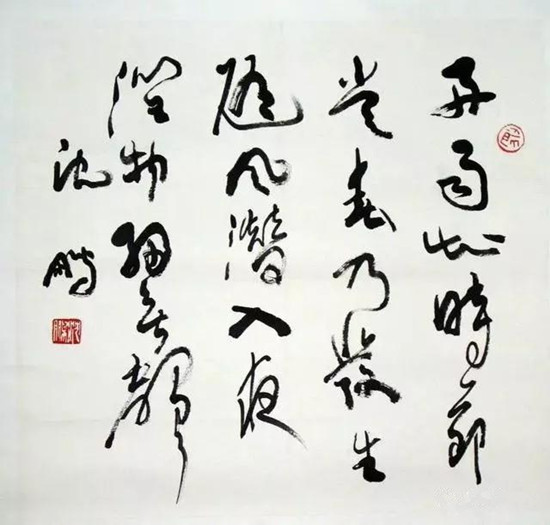 好雨知時節
當春乃發生
隨風潛入夜
潤物細無聲
沈鵬